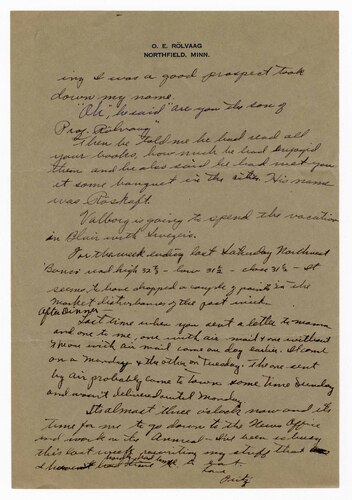 O. E. RÖLVAAG
NORTHFIELD, MINN.
ing I was a good prospect took
down my name.
"Oh", he said "are you the son of
Prof. Rolvaag"
Then he told me he had read all
your books, how much he had enjoyed
them and he also said he had met you
at some banquet in the cities. His name
was Roskoft.
Valborg is going to spend the vacation
in Blair with
For the week ending last Saturday Northwest
Banco was high 32½ - low 31½ - close 31½ - It
seems to have dropped a couple of points in the
market disturbances of the past week.
After Dinner
Last time when you sent a letter to mama
and one to me, one with air mail & one without
the one with air mail came one day earlier. It came
on a Monday & the other on Tuesday. The one sent
by air probably came to town some time Sunday
and wasn't delivered until Monday.
It's almost three o'clock now and it's
time for me to go down to the News Office
and work on the Annual - I've been so busy
this last week my stuff that
I haven't had time to eat.
Love